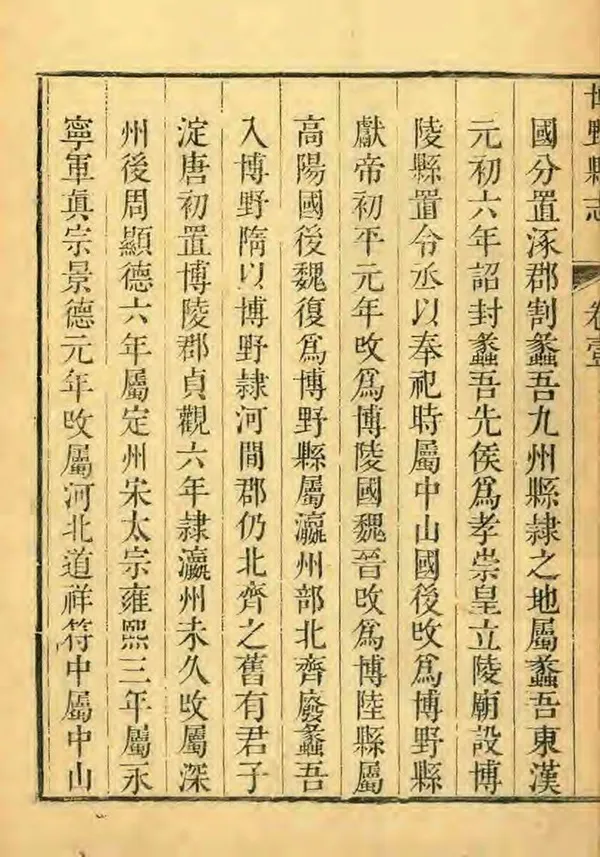 博野縣志 卷壹
國分置涿郡割蠡吾九州縣隸之地屬蠡吾東漢
元初六年詔封蠡吾先侯爲孝崇皇立陵廟設博
陵縣置令丞以奉祀時屬中山國後攺爲博野縣
獻帝初平元年攺爲博陵國魏晉攺爲博陸縣屬
高陽國後魏復爲博野縣屬瀛州部北齊廢蠡吾
入博野隋以博野隸河間郡仍北齊之舊有君子
淀唐初置博陵郡貞觀六年隸瀛州未久攺屬深
州後周顯德六年屬定州宋太宗雍熙三年屬永
寧軍眞宗景德元年攺屬河北道祥符中屬中山